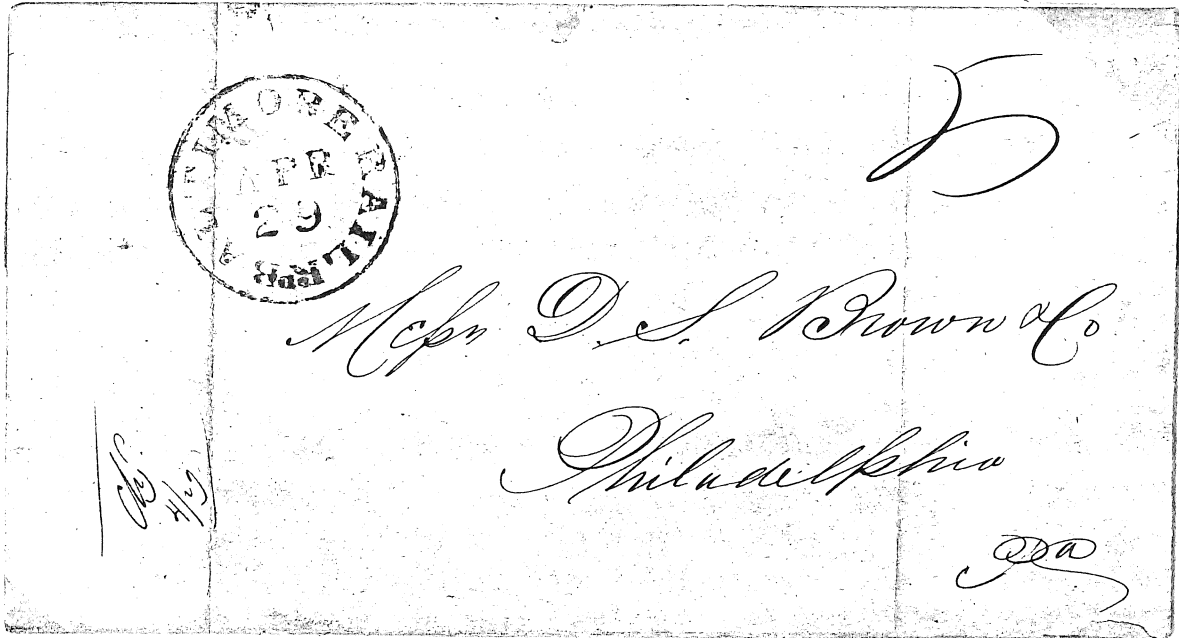 5
BALTIMORE RAILRD
APR
29
Messrs D. S. Brown & Co
Philadelphia
Pa
4/29